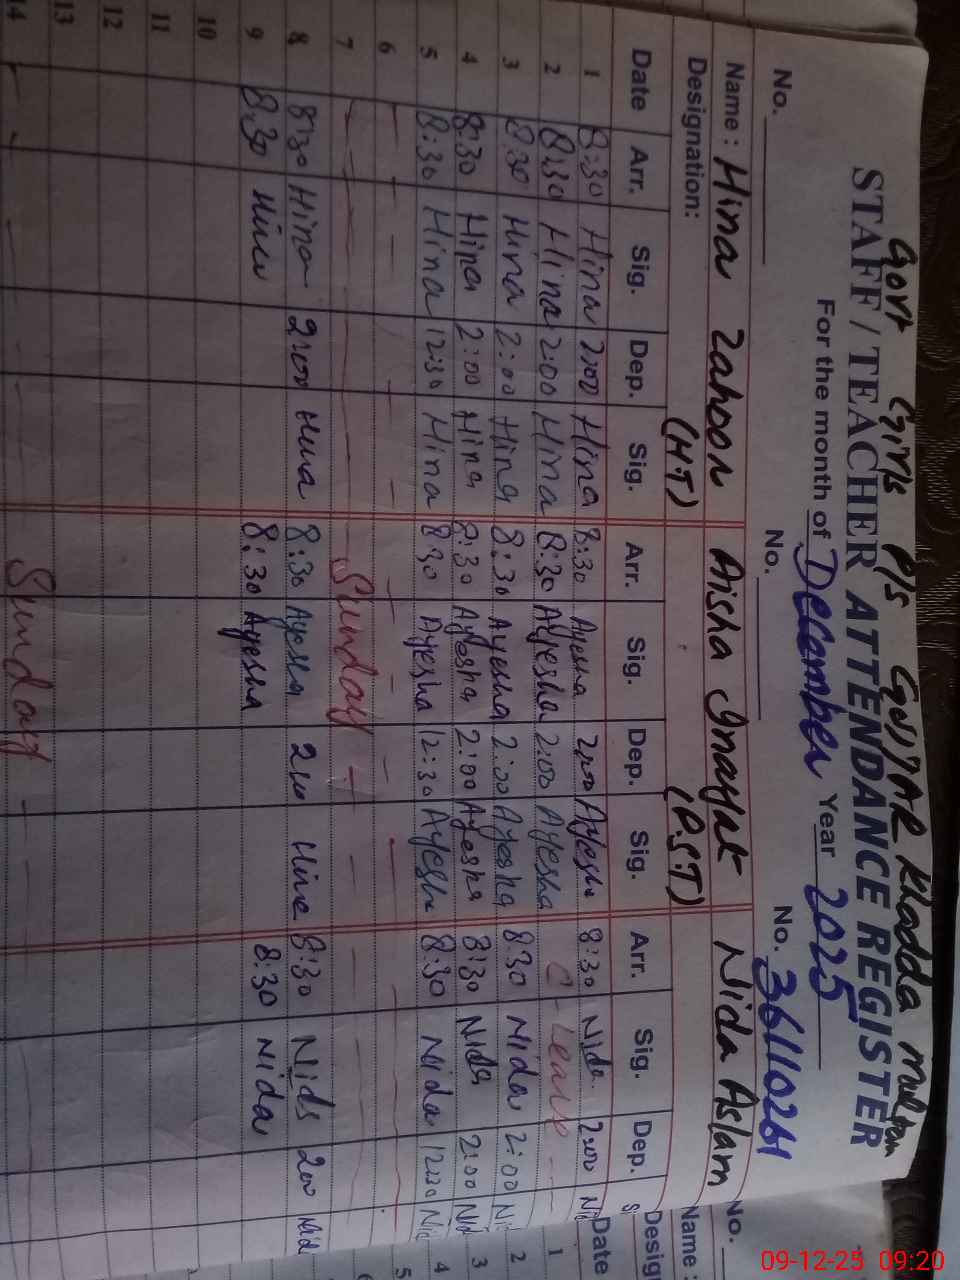 Govt Girls P/S GUJJAR Khadda multan
STAFF / TEACHER ATTENDANCE REGISTER
For the month of December Year 2025
No. No. No. 36110261 No.
Name : Hina Zahoor Aisha Inayat Nida Aslam Name :
Designation: (HT) (P.S.T) Desig
Date Arr. Sig. Dep. Sig. Arr. Sig. Dep. Sig. Arr. Sig. Dep. S Date
1 8:30 Hina 2:00 Hina 8:30 Ayesha 2:00 Ayesha 8:30 Nida 2:00 Nid 1
2 8:30 Hina 2:00 Hina 8:30 Ayesha 2:00 Ayesha C-Leave 2
3 8:30 Hina 2:00 Hina 8:30 Ayesha 2:00 Ayesha 8:30 Nida 2:00 Ni 3
4 8:30 Hina 2:00 Hina 8:30 Ayesha 2:00 Ayesha 8:30 Nida 2:00 Nid 4
5 8:30 Hina 12:30 Hina 8:30 Ayesha 12:30 Ayesha 8:30 Nida 12:30 Nid 5
6
7 Sunday
8 8:30 Hina 2:00 Hina 8:30 Ayesha 200 Hina 8:30 Nida 200 Nid
9 8:30 Hina 8:30 Ayesha 8:30 Nida
10
11
12
13
14 Sunday
09-12-25 09:20